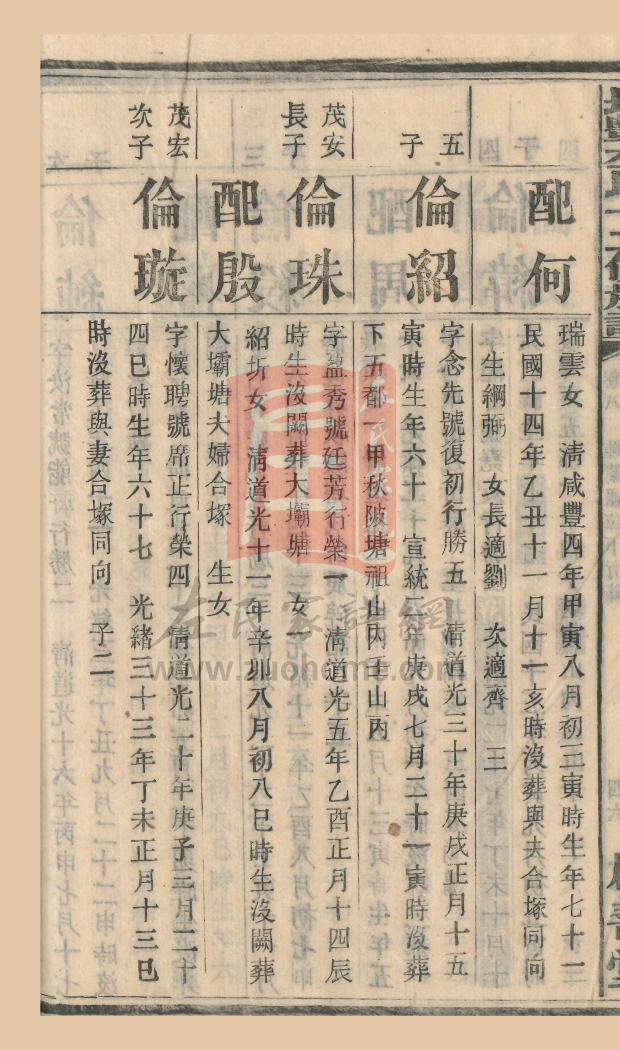 配何
瑞雲女 清咸豐四年甲寅八月初三寅時生年七十二
民國十四年乙丑十一月十一亥時沒葬與夫合塚同向
生綱弼 女長適劉 次適齊 三
五子
倫紹
字念先號復初行勝五 清道光三十年庚戌正月十五
寅時生年六十 宣統二年庚戌七月二十一寅時沒葬
下五都一甲秋陂塘祖山丙壬山丙
茂安長子
倫珠
字盈秀號廷芳行榮一 清道光五年乙酉正月十四辰
時生沒闕葬大壩塘 女一
配殷
紹圻女 清道光十一年辛卯八月初八巳時生沒闕葬
大壩塘夫婦合塚 生女
茂宏次子
倫璇
字懷聘號席正行榮四 清道光二十年庚子三月二十
四巳時生年六十七 光緒三十三年丁未正月十三巳
時沒葬與妻合塚同向 子二
在民家譜網
www.zuohome.com